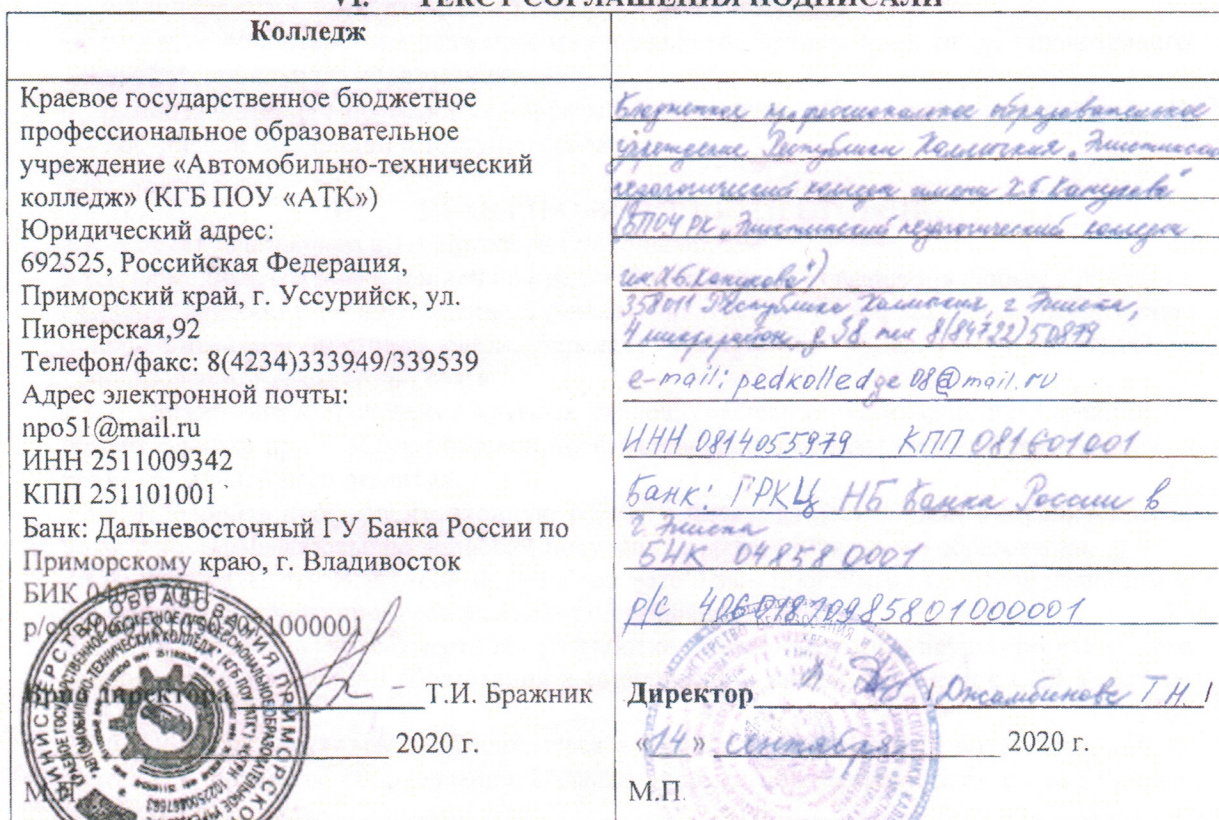 VI. ТЕКСТ СОГЛАШЕНИЯ ПОДПИСАЛИ
Колледж
Краевое государственное бюджетное
профессиональное образовательное
учреждение «Автомобильно-технический
колледж» (КГБ ПОУ «АТК»)
Юридический адрес:
692525, Российская Федерация,
Приморский край, г. Уссурийск, ул.
Пионерская,92
Телефон/факс: 8(4234)333949/339539
Адрес электронной почты:
npo51@mail.ru
ИНН 2511009342
КПП 251101001
Банк: Дальневосточный ГУ Банка России по
Приморскому краю, г. Владивосток
БИК
р/с 1000001
Врио директора Т.И. Бражник
2020 г.
М.П
Бюджетное профессиональное образовательное
учреждение Республики Калмыкия „Элистинский
педагогический колледж имени Х.Б. Канукова"
(БПОУ РК „Элистинский педагогический колледж
им Х.Б. Канукова")
358011 Республика Калмыкия, г Элиста,
4 микрорайон, д 38 тел 8(84722)50879
e-mail: pedkolledge08@mail.ru
ИНН 0814055979 КПП 081601001
Банк: ГРКЦ НБ Банка России в
г Элиста
БИК 048580001
р/с 40601810985801000001
Директор /Джамбинова Т.Н./
«14» сентября 2020 г.
М.П.